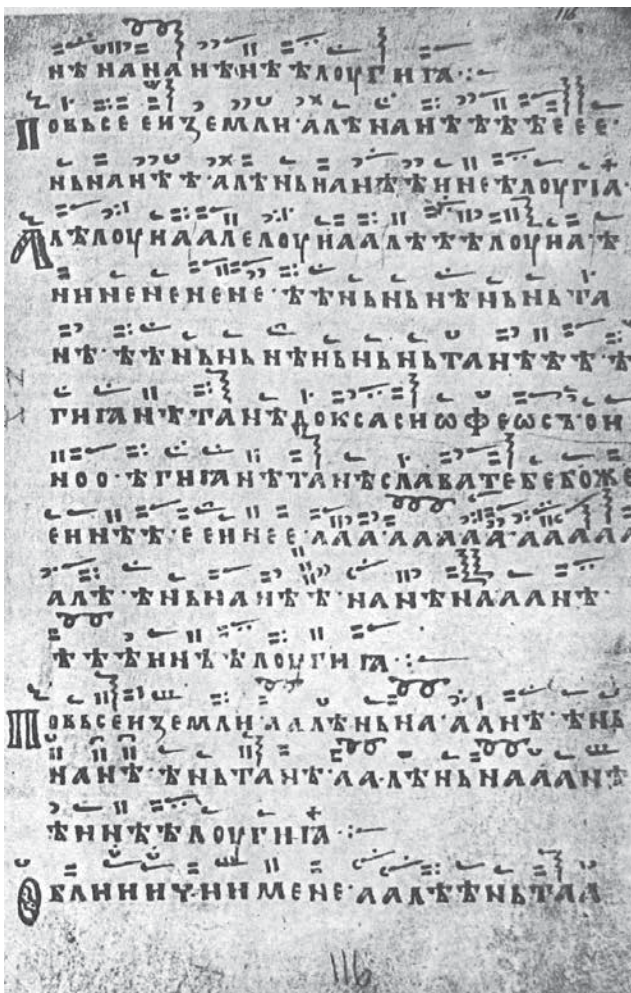 116
НѢНАНАНѢНѢѢЛОУГНІА·:~
ПОВЬСЕЕИЗЕМЛИ·АЛѢНАНѢѢѢЕЕЕ·
НЬНАНѢѢ·АЛѢНЬНАНѢѢННЕѢЛОУГІА·
АЛѢЛОУНААЛЕЛОУНААЛѢѢѢЛОУНА·Ѣ
НННЕНЕНЕНЕ·ѢѢНЬНЬНѢНЬНЬТА
НѢ·ѢѢНЬНЬНѢНЬНЬНЬТАНѢѢѢѢ
ГНІАНѢТАНѢДОКСАСНѠФЕѠСЪОН
НОО·ѢГНІАНѢТАНѢСЛАВАТЕБЕБОЖЕ
ЕННѢѢ·ЕЕННЕЕ·ААА·АААААА·ААААА
АЛѢ·ѢНЬНАНѢѢ·НАНѢНАААНѢ·
ѢѢѢННѢѢЛОУГНІА·:~
ПОВЬСЕИЗЕМЛИ·ААЛѢНЬНА·ААНѢ·ѢНЬ
НАНѢ·ѢНЬТАНѢ·АА·ЛѢНЬНАААНѢ
ѢННѢѢЛОУГНІА·:~
ОБЛИНИЧ·НИМЕНЕ·ААЛѢѢНЬТАА
116